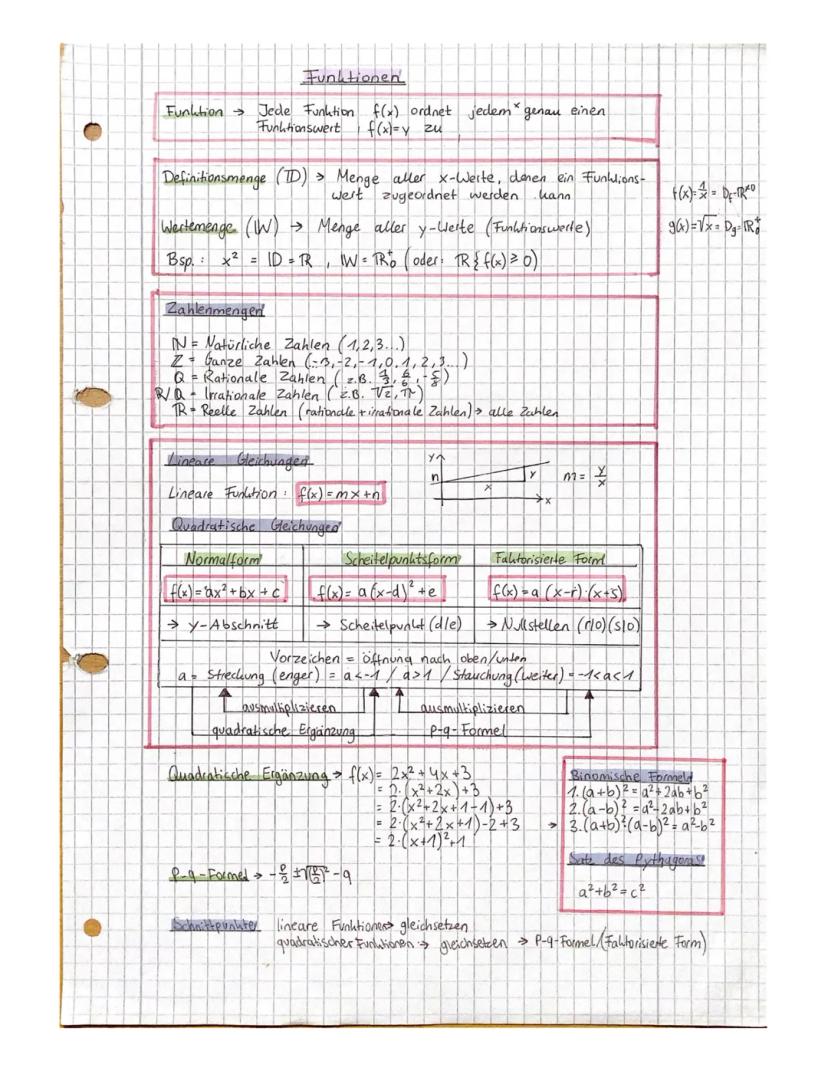 Funktionen
Funktion → Jede Funktion f(x) ordnet jedem x genau einen
Funktionswert, f(x)=y zu
Definitionsmenge (ID) → Menge aller x-Werte, denen ein Funktions-
wert zugeordnet werden kann
f(x)= 1/x = Df=ℝ≠0
Wertemenge (IW) → Menge aller y-Werte (Funktionswerte)
g(x)=√x = Dg=ℝ₀⁺
Bsp.: x² = ID = ℝ, IW = ℝ₀⁺ (oder: ℝ{f(x) ≥ 0)
Zahlenmengen
ℕ = Natürliche Zahlen (1,2,3...)
ℤ = Ganze Zahlen (-3,-2,-1,0,1,2,3...)
Q = Rationale Zahlen (z.B. 1/3, 6/6, -5/8)
ℝ/Q = Irrationale Zahlen (z.B. √2, π)
ℝ = Reelle Zahlen (rationale + irrationale Zahlen) → alle Zahlen
Lineare Gleichungen
y
n
y
x
x
m = y/x
Lineare Funktion: f(x) = mx+n
Quadratische Gleichungen
Normalform Scheitelpunktsform Faktorisierte Form
f(x)=ax²+bx+c f(x)= a(x-d)²+e f(x)=a(x-r)·(x+s)
→ y-Abschnitt → Scheitelpunkt (d/e) → Nullstellen (r|0)(s|0)
Vorzeichen = Öffnung nach oben/unten
a = Streckung (enger) = a<-1 / a>1 / Stauchung (weiter) = -1<a<1
ausmultiplizieren ausmultiplizieren
quadratische Ergänzung P-q-Formel
Quadratische Ergänzung → f(x)= 2x²+4x+3
= 2·(x²+2x)+3
= 2·(x²+2x+1-1)+3
= 2·(x²+2x+1)-2+3
= 2·(x+1)²+1
Binomische Formeln
1.(a+b)²=a²+2ab+b²
2.(a-b)²=a²-2ab+b²
→ 3.(a+b)²·(a-b)²=a²-b²
Satz des Pythagoras
a²+b²=c²
P-q-Formel → -p/2 ±√(p/2)²-q
Schnittpunkte lineare Funktionen → gleichsetzen
quadratischer Funktionen → gleichsetzen → P-q-Formel/(Faktorisierte Form)